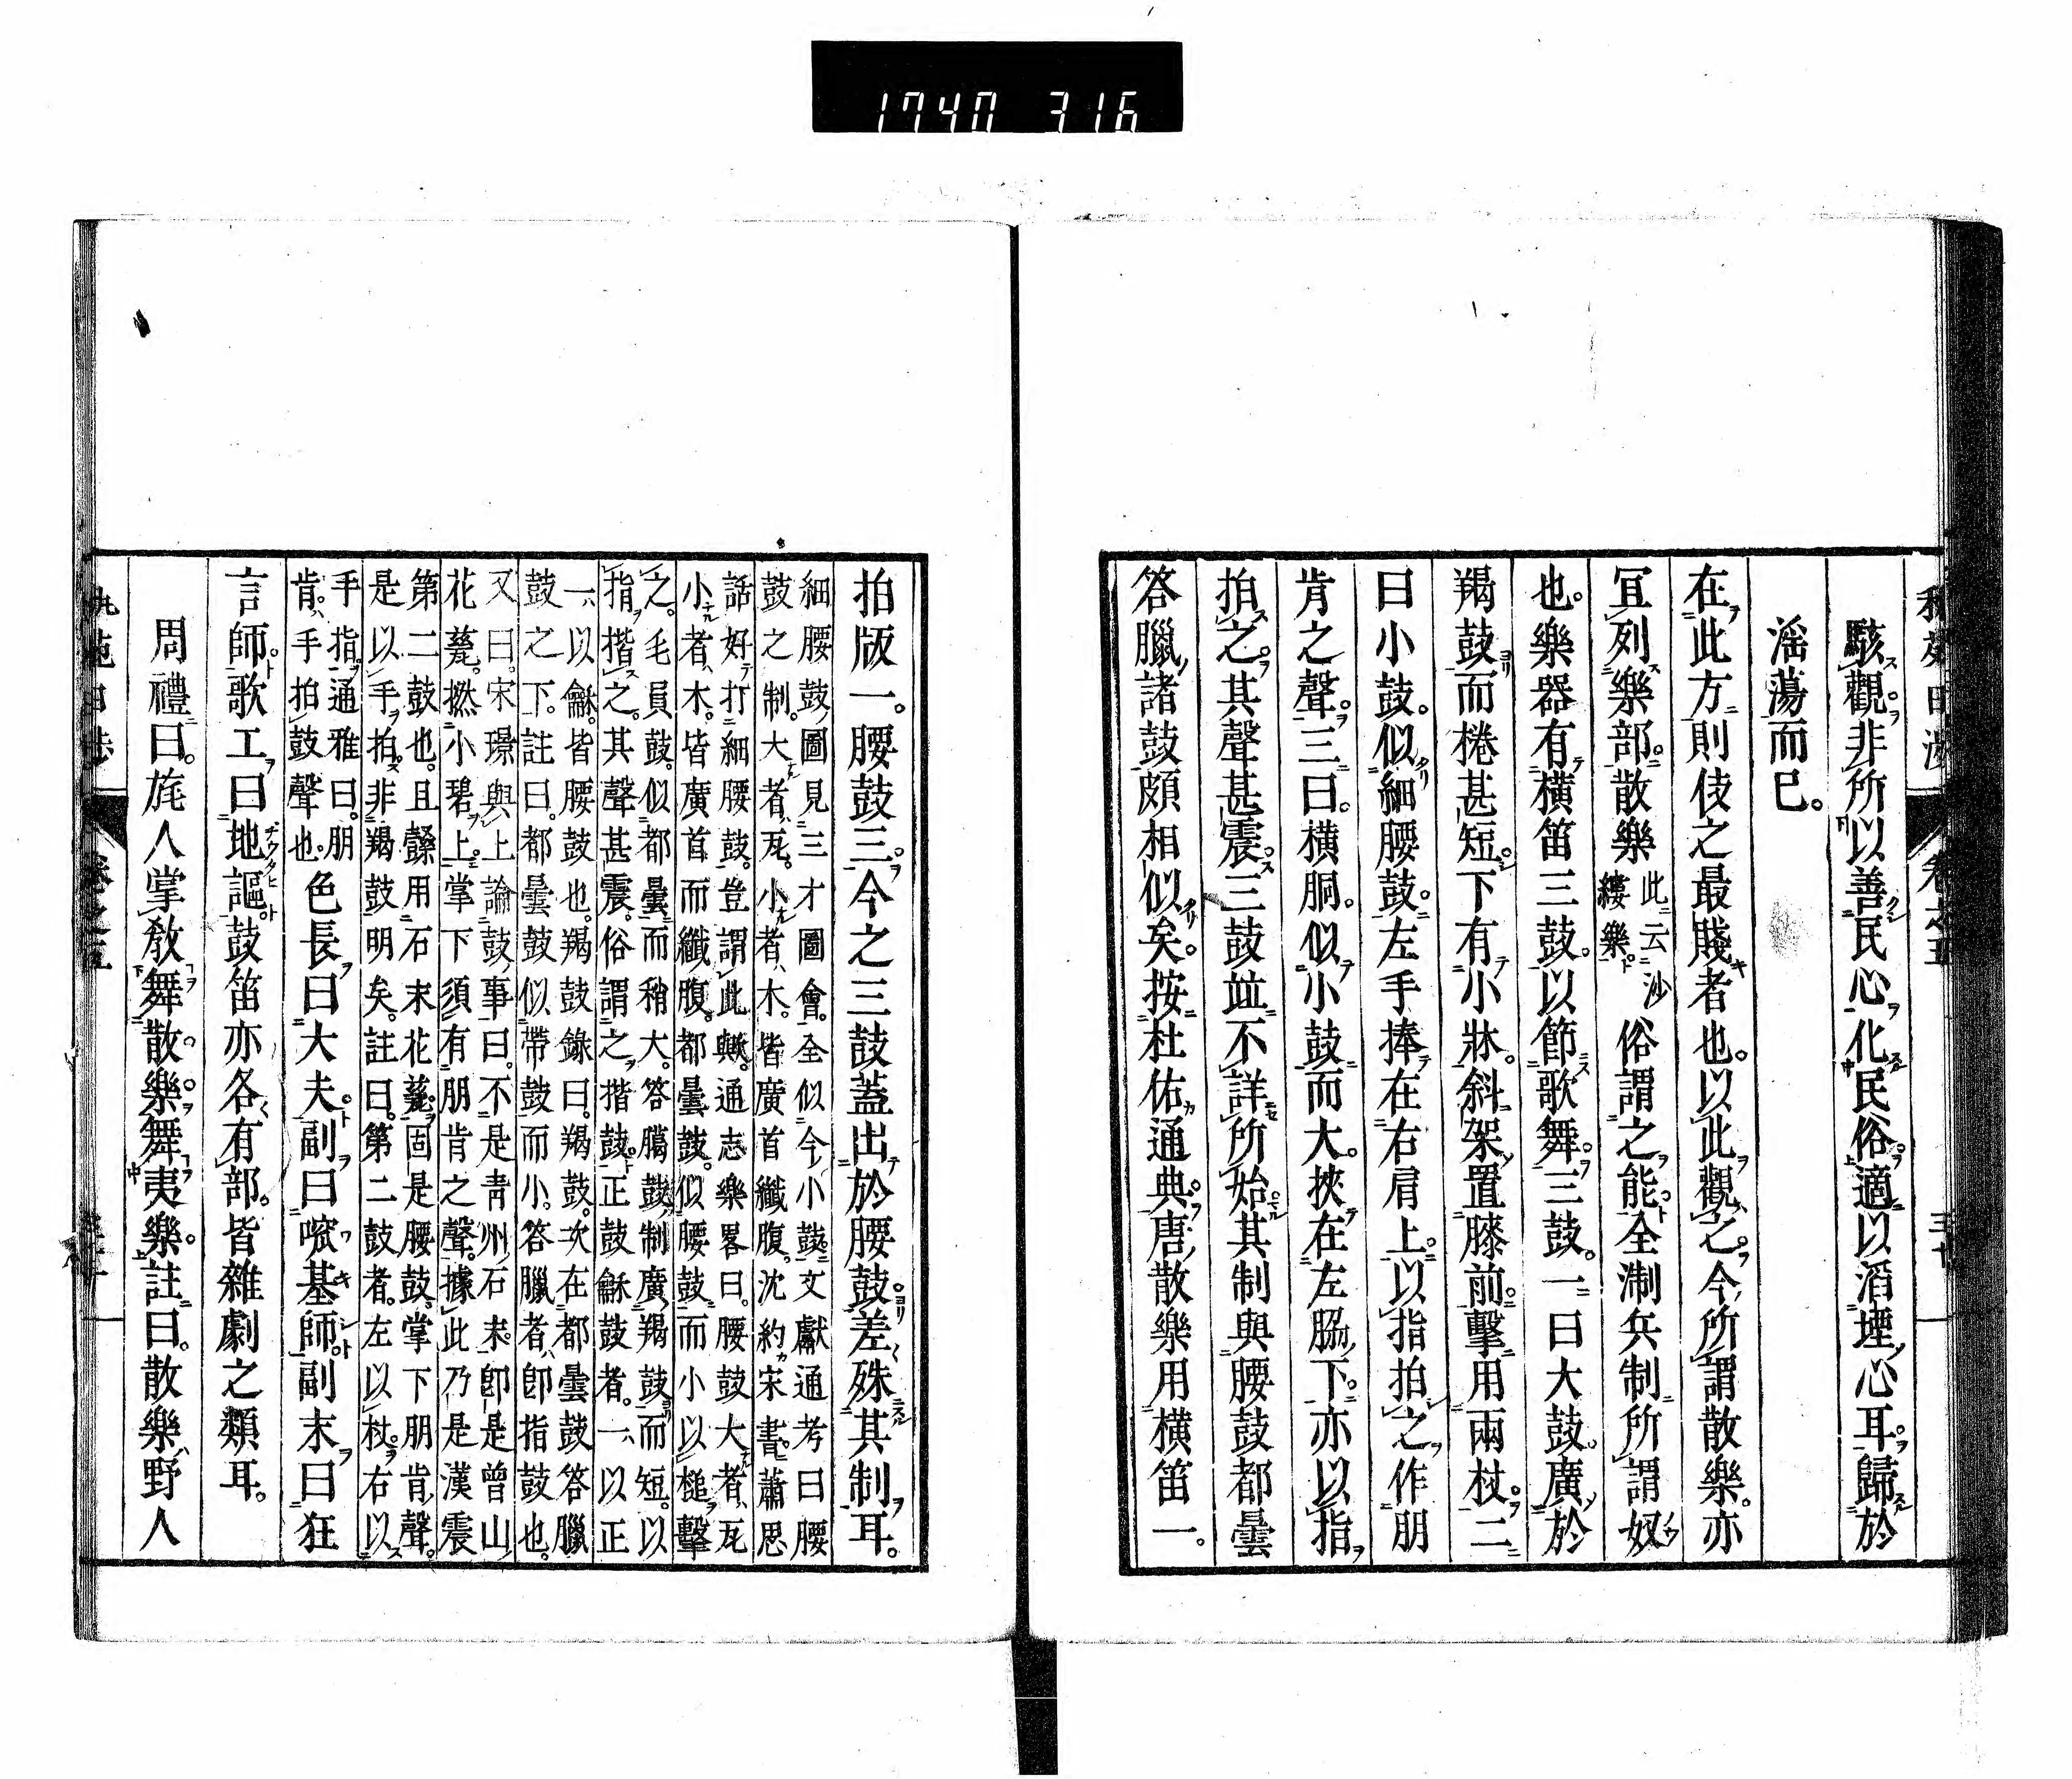 1740 316
駭觀非所以善民心化民俗適以滔堙心耳歸於
滛蕩而已。
在此方則伎之最賤者也。以此觀之。今所謂散樂。亦
冝列樂部。散樂此云沙縷樂。俗謂之能全淛兵制所謂奴
也。樂器有橫笛三鼓。以節歌舞。三鼓。一曰大鼓。廣於
羯鼓而棬甚短。下有小牀。斜架置膝前。擊用兩杖。二
曰小鼓。似細腰鼓。左手捧在右肩上。以指拍之。作朋
肯之聲。三曰。橫胴。似小鼓而大。挾在左脇下。亦以指
拍之。其聲甚震。三鼓竝不詳所始。其制與腰鼓都曇
答臘諸鼓頗相似矣。按杜佑通典。唐散樂用橫笛一。
拍版一。腰鼓三。今之三鼓蓋出於腰鼓。差殊其制耳。
細腰鼓圖見三才圖會。全似今小鼓。文獻通考曰腰
鼓之制。大者瓦。小者木。皆廣首纖腹。沈約宋書。蕭思
話好打細腰鼓。豈謂此歟。通志樂畧曰。腰鼓大者瓦
小者木。皆廣首而纖腹。都曇鼓。似腰鼓而小以槌擊
之。毛員鼓。似都曇而稍大。答臈鼓制廣羯鼓而短。以
指揩之。其聲甚震。俗謂之揩鼓。正鼓龢鼓者。一以正
一以龢。皆腰鼓也。羯鼓錄曰。羯鼓。次在都曇鼓答臘
鼓之下。註曰。都曇鼓似帶鼓而小。答臘者卽指鼓也。
又曰。宋璟與上論鼓事曰。不是靑州石末。卽是曾山
花甆。撚小碧上。掌下須有朋肯之聲。據此乃是漢震
第二鼓也。且鼗用石末花甆。固是腰鼓。掌下朋肯聲。
是以手拍。非羯鼓明矣。註曰。第二鼓者。左以杖。右以
手指。通雅曰。朋
肯。手拍鼓聲也。色長曰大夫。副曰喨基師。副末曰狂
言師。歌工曰地謳。鼓笛亦各有部。皆雜劇之類耳。
周禮曰。旄人掌敎舞散樂舞夷樂。註曰。散樂野人